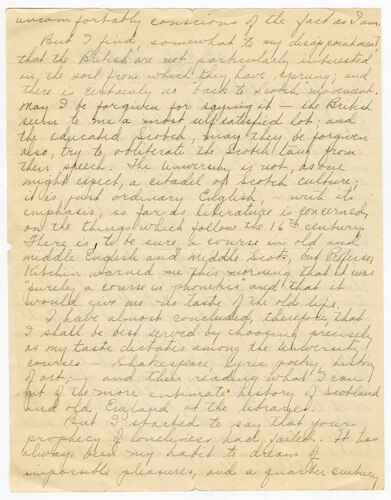 uncomfortably conscious of the fact as I am.
But I find, somewhat to my disappointment,
that the British are not particularly interested
in the soil from which they have sprung; and
there is certainly no "back to Scotch" movement.
May I be forgiven for saying it – the British
seem to me a most self satisfied lot; and
the educated Scotch, may they be forgiven
also, try to obliterate the Scotch from
their speech. The University is not, as one
might expect, a citadel of Scotch culture;
it is just ordinary English, – with its
emphasis, so far as literature is concerned,
on the things which follow the 16th century.
There is, to be sure, a course in old and
middle English and middle Scots, but Professor
Kitchin warned me this morning that it was
"purely a course in phonetics" and that it
would give me no taste of the old life.
I have almost concluded, therefore, that
I shall be best served by choosing precisely
as my taste dictates among the University
courses – Shakespeare, lyric poetry, history
of art; – and then reading what I can
get of the more intimate history of Scotland
and old England at the libraries.
But I started to say that your
prophecy of loneliness had failed. It has
always been my habit to dream of
impossible pleasures, and a quarter century